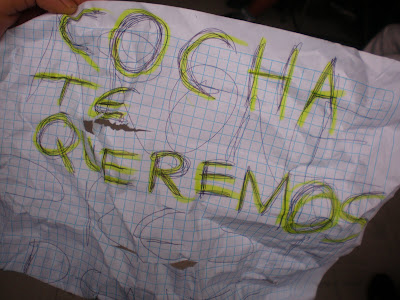 COCHA
TE
QUEREMOS